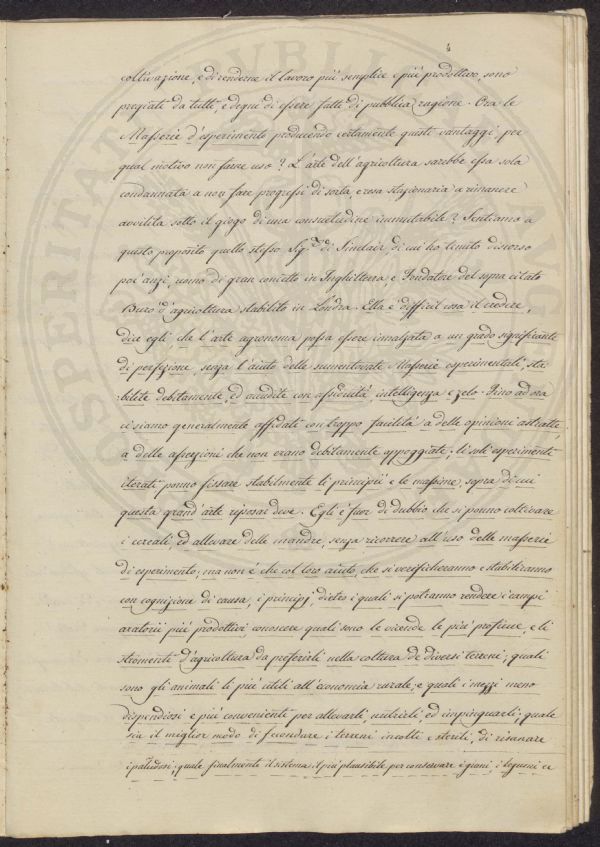 4
coltivazione, e di renderne il lavoro più semplice e più produttivo, sono
pregiate da tutti, e degni di essere fatti di pubblica ragione. Ora le
Masserie d'esperimento producendo certamente questi vantaggi, per
qual motivo non farne uso? L'arte dell'agricoltura sarebbe essa sola
condannata a non fare progressi di sorta, e resa stazionaria a rimanere
avvilita sotto il giogo di una consuetudine immutabile? Sentiamo a
questo proposito quello stesso Sig.r di Sinclair, di cui ho tenuto discorso
poc'anzi, uomo di gran concetto in Inghilterra, e Fondatore del sopra citato
Burò d'agricoltura stabilito in Londra. Ella è difficil cosa il credere,
dice egli che l'arte agronoma possa essere innalzata a un grado significante
di perfezione senza l'aiuto delle summentovate Masserie esperimentali sta-
bilite debitamente, ed accudite con assiduità, intelligenza e zelo. Fino ad ora
ci siamo generalmente affidati con troppo facilità a delle opinioni astratte,
a delle asserzioni che non erano debitamente appoggiate; li soli esperimenti
iterati ponno fissare stabilmente li principii e le massime, sopra di cui
questa grand'arte riposar deve. Egli è fuor di dubbio che si ponno coltivare
i cereali, ed allevare delle mandre, senza ricorrere all'uso delle masserie
di esperimento; ma non è che col loro aiuto, che si verificheranno e stabiliranno
con cognizione di causa, i principj, dietro i quali si potranno rendere i campi
aratorii più produttivi conoscere quali sono le vicende le più proficue, e li
stromenti d'agricoltura da preferirsi nella coltura de diversi terreni; quali
sono gli animali li più utili all'economia rurale; e quali i mezzi meno
dispendiosi e più convenienti per allevarli, nutrirli ed impinguarli; quale
sia il miglior modo di fecondare i terreni incolti e sterili, di risanare
i paludosi; quale finalmente il sistema il più plausibile per conservare i grani, i legumi ec
PROSPERITATI PUBLICAE AUG